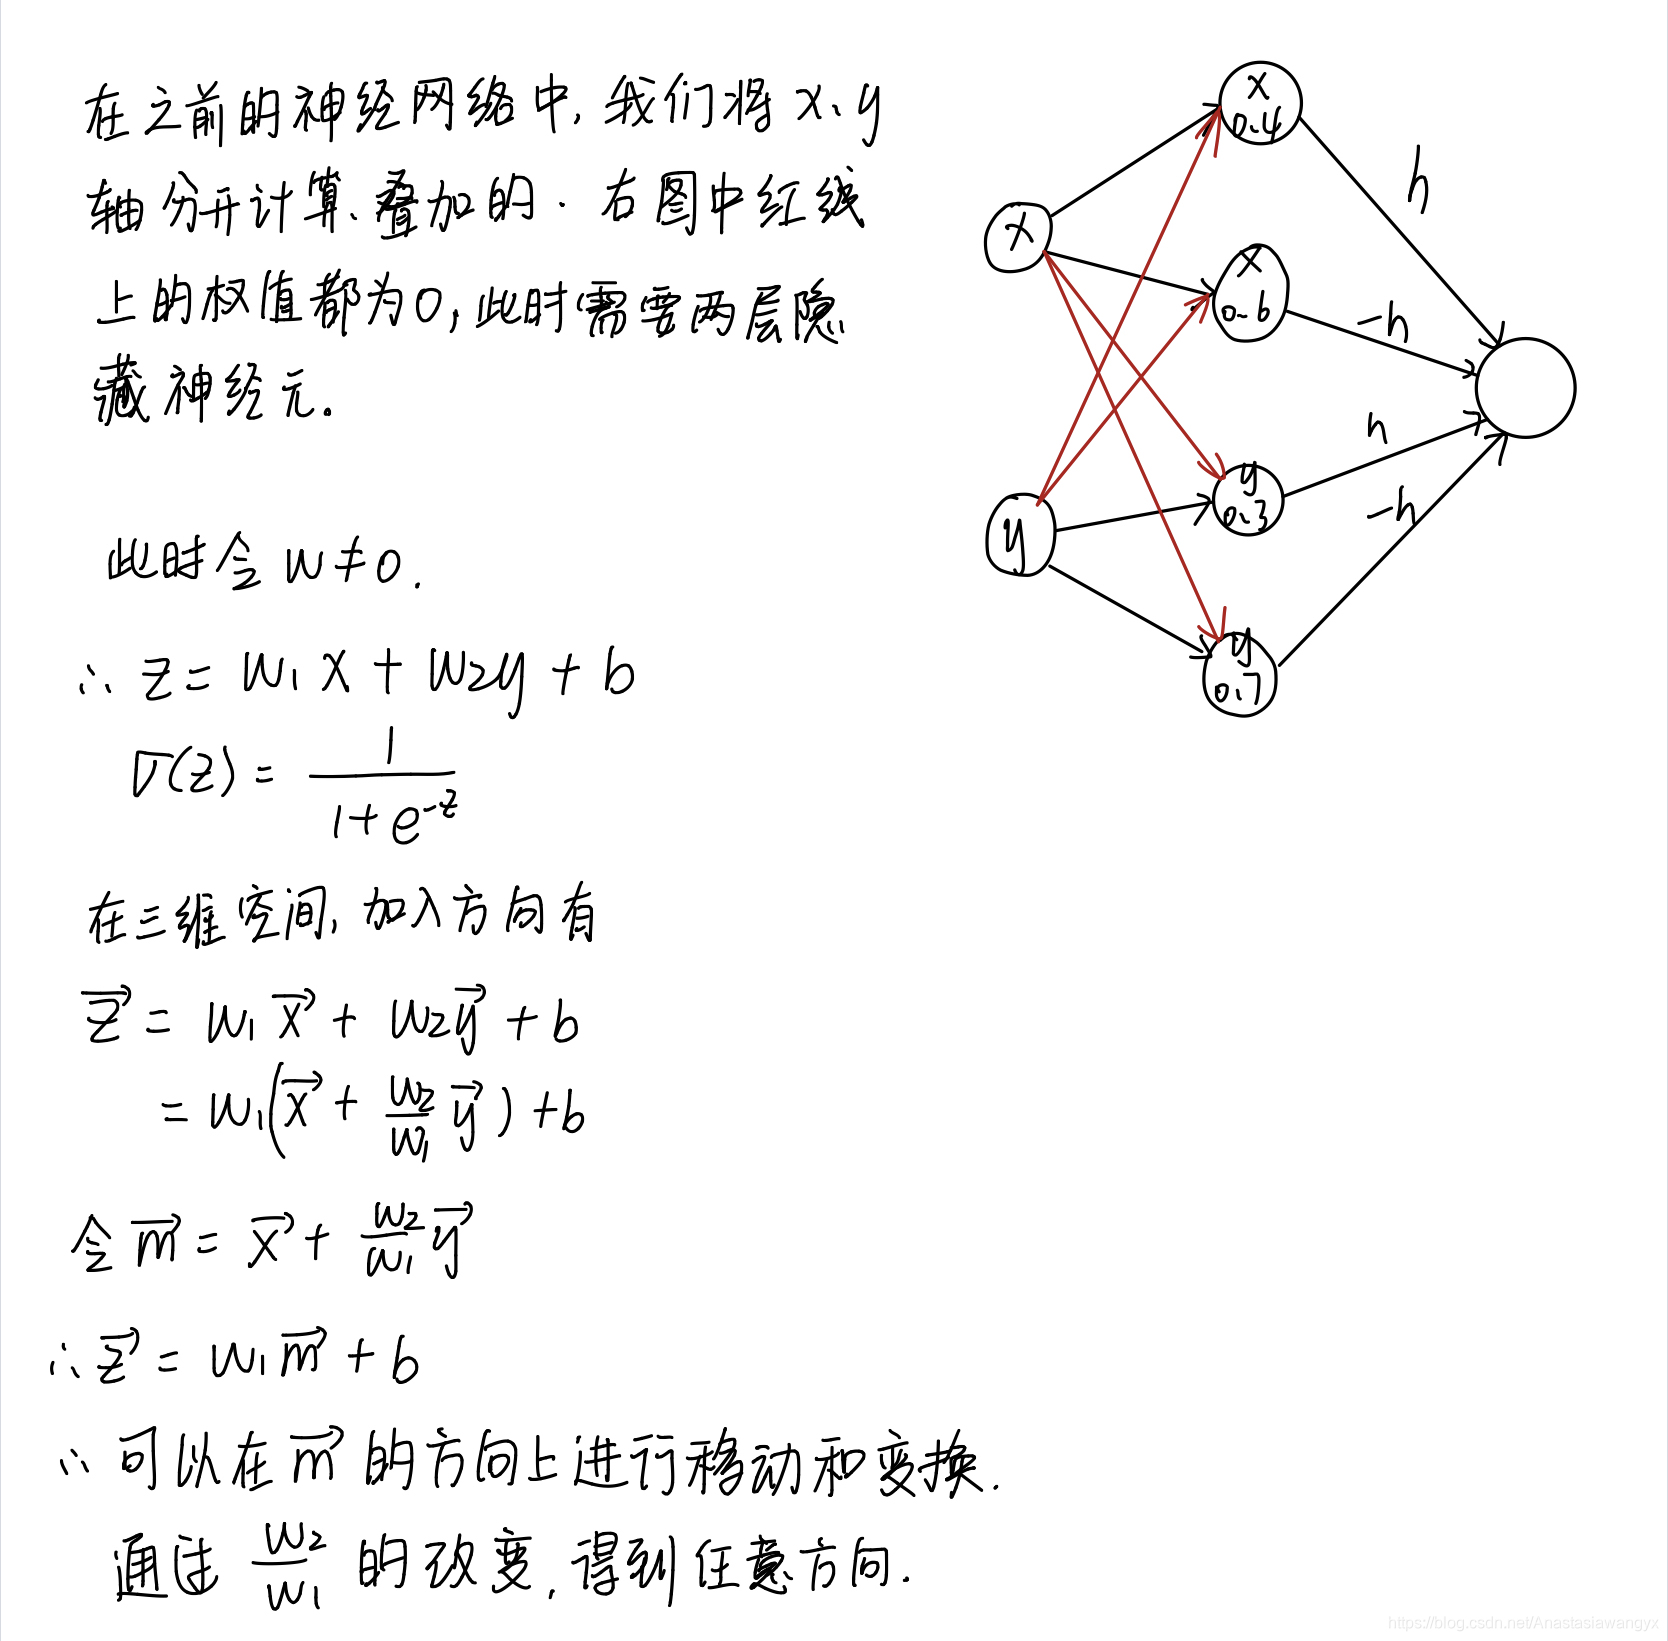 在之前的神经网络中,我们将x、y
轴分开计算、叠加的.右图中红线
上的权值都为0,此时需要两层隐
藏神经元.
此时令 w≠0.
∴ z = w₁x + w₂y + b
σ(z) = 1/(1+e^-z)
在三维空间,加入方向有
z⃗ = w₁x⃗ + w₂y⃗ + b
= w₁(x⃗ + w₂/w₁ y⃗) + b
令 m⃗ = x⃗ + w₂/w₁ y⃗
∴ z⃗ = w₁m⃗ + b
∴ 可以在 m⃗ 的方向上进行移动和变换.
通过 w₂/w₁ 的改变,得到任意方向.
x
0.4
h
x
x
0.6
-h
h
y
0.3
-h
y
y
0.7
https://blog.csdn.net/Anastasiawangyx